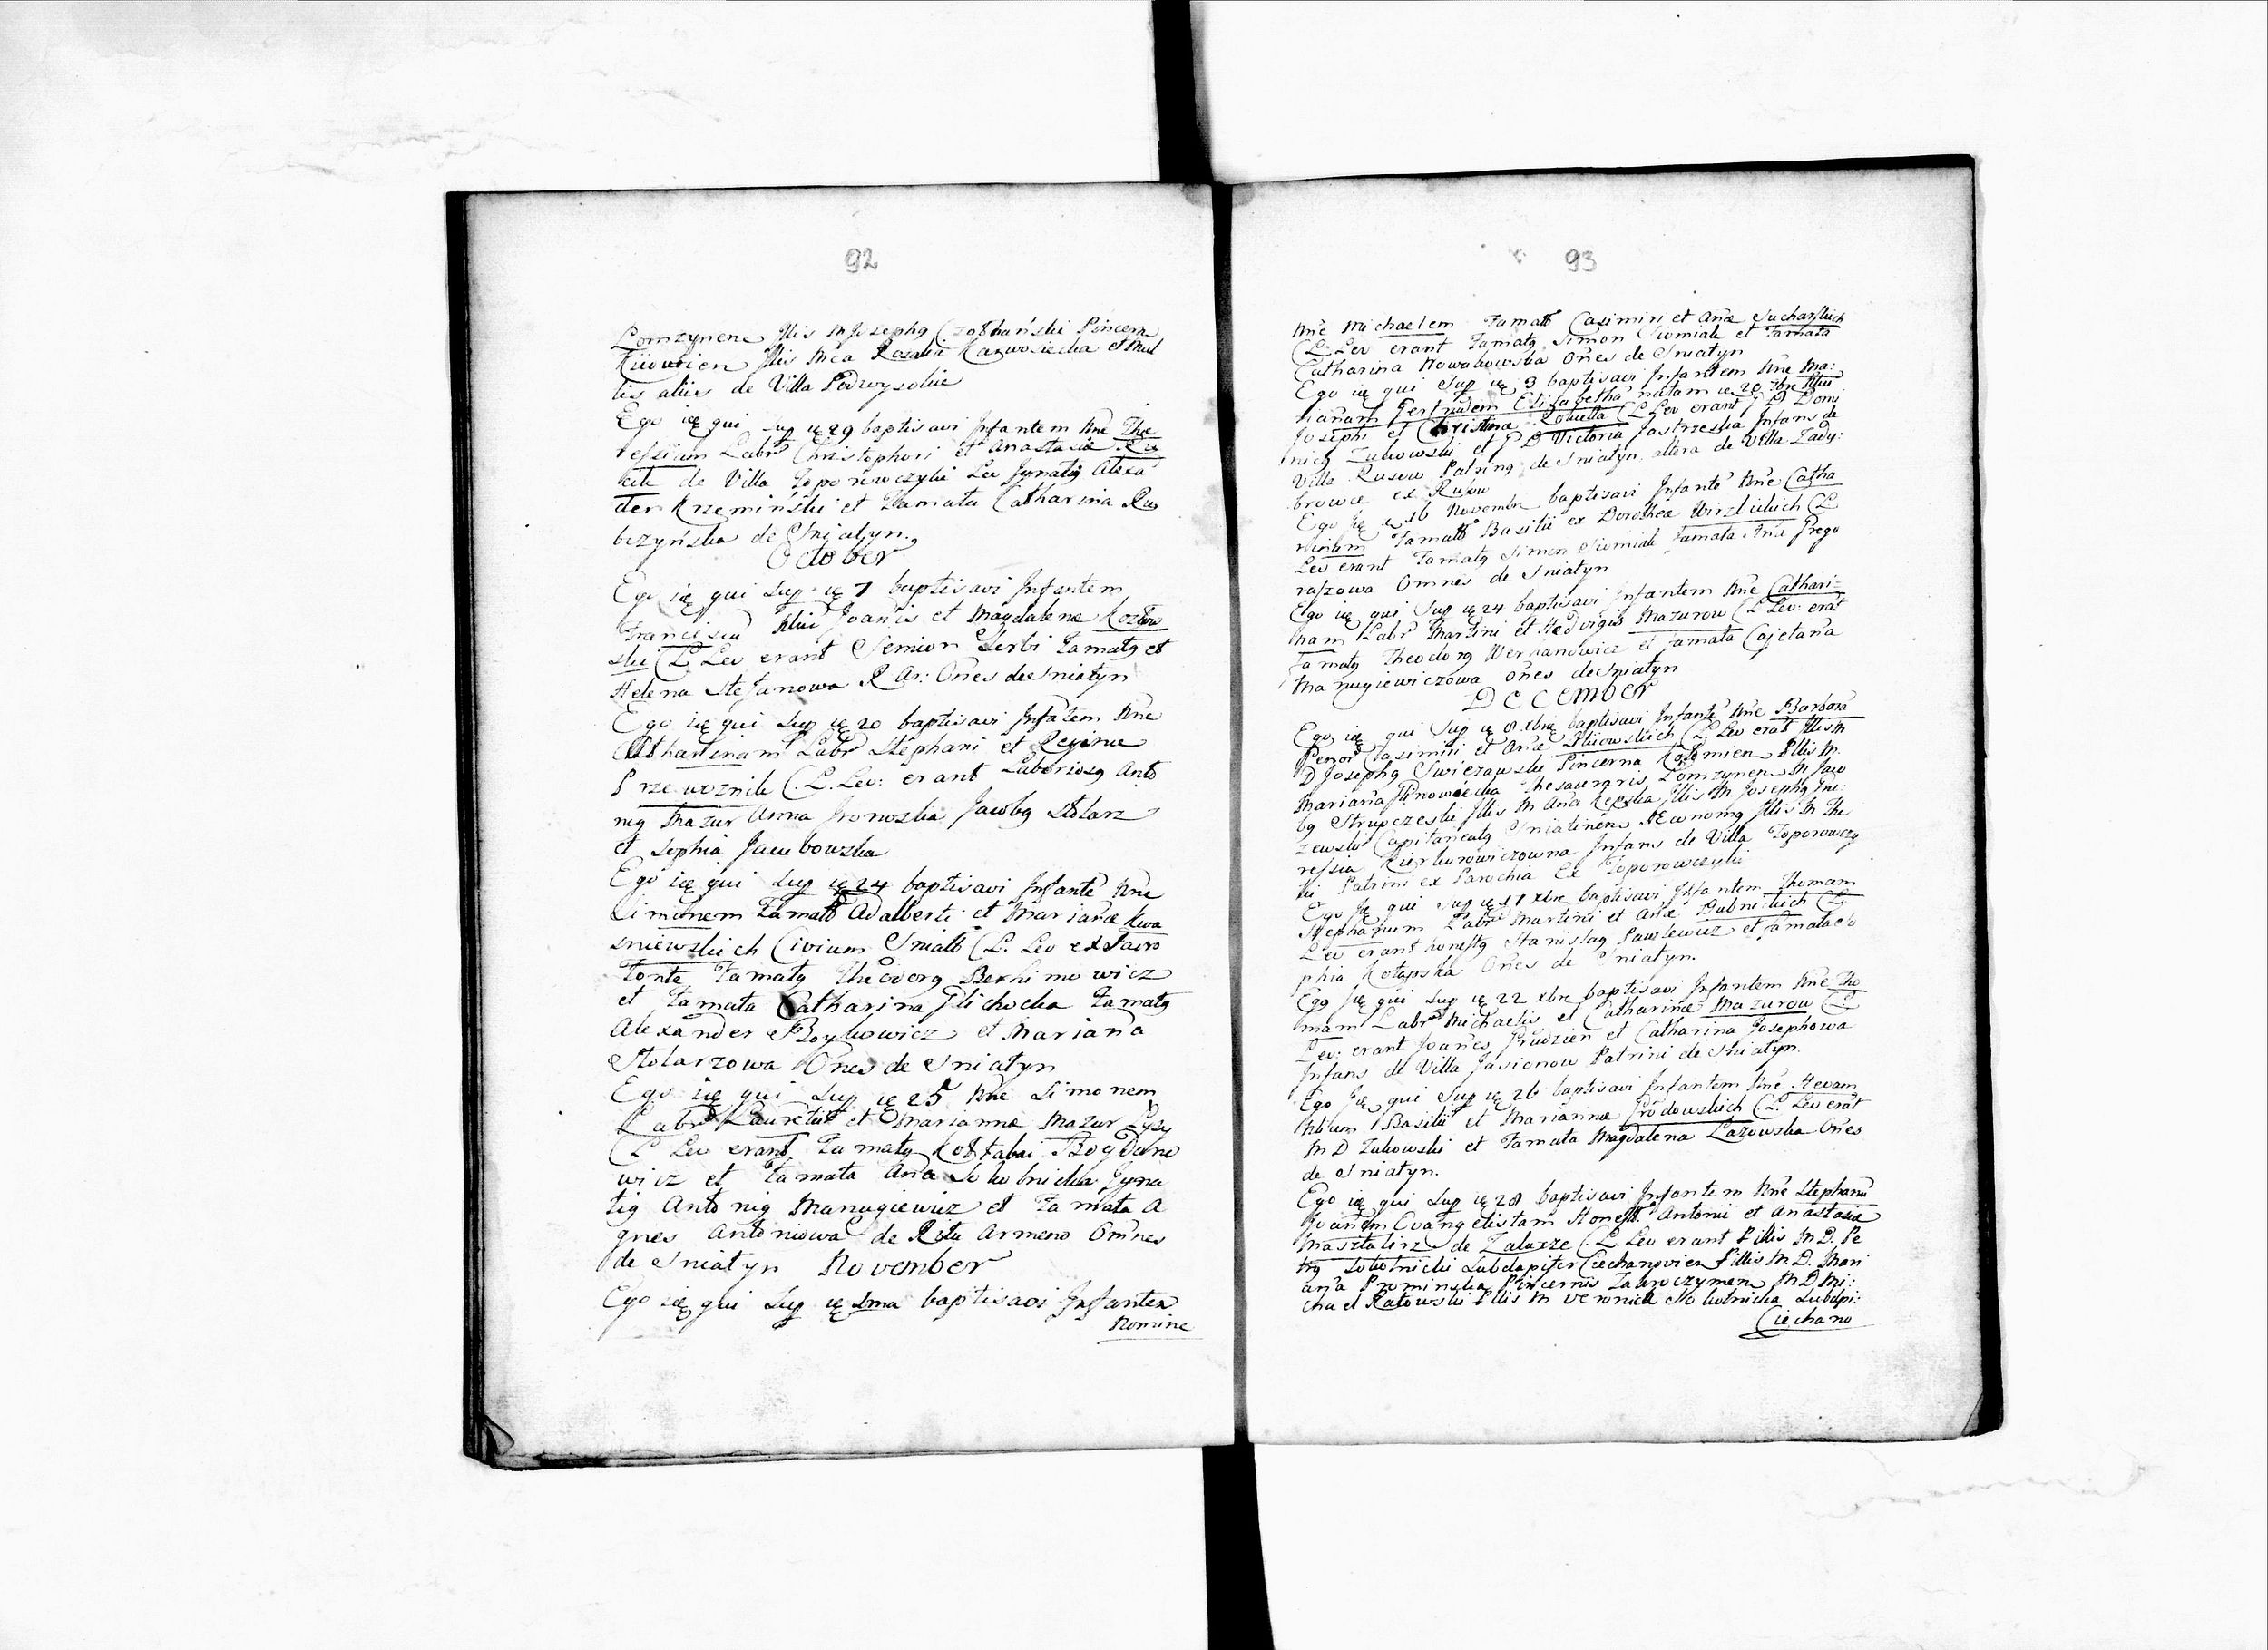 92
Lomzynens Illis M Josephq Czołhański Pincern
Kiiowien Illis Mca Rozalia Karwosiecka et mul
tis aliis de Villa Podwysokie
Ego ię qui Sup ię 29 baptisavi Infantem Nne The
ressiam Labr Christophori et Anastasiæ
de Villa Toporowczyki Lev Famatq Alexa
der Krzemiński et Famata Catharina Ru
bczyńska de Sniatyn.
October
Ego ię qui Sup ię 7 baptisavi Infantem
Franciscu Joanis et Magdalenæ Kozłow
ski (L Lev erant Semion Serbi Famatq et
Helena Stefanowa R Ar: Ones de Sniatyn
Ego ię qui Sup ię 20 baptisavi Infatem Nne
Catharinam Labr Stephani et Reginæ
Przewoznik (L. Lev: erant Laboriosq Anto
niq Mazur Anna Jronoska Jacobq Stolarz
et Sophia Jacubowska
Ego ię qui Sup ię 24 baptisavi Infante Nne
Simonem Famatt Adalberti et Marianæ Kwa
sniewskich Civium Sniatt (L. Lev ex Sacro
Fonte Famatq Theodorq Berhimowicz
et Famata Catharina Glichocka Famatq
Alexander Boykowicz et Mariana
Stolarzowa Ones de Sniatyn
Ego ię qui Sup ię 25 Nne Simonem
Labr Lauretii et Mariannæ Mazur
(L Lev erant Famatq Bogdano
wicz et Famata Ana Sokolnicka Jgna
tiq Antoniq Manugiewicz et Famata A
gnes Antoniowa de Ritu Armeno Omnes
de Sniatyn November
Ego ię qui Sup ię 1ma baptisavi Infantem
Nomine
93
Nne Michaelem Famatt Casimiri et Anæ Sucharskich
(L. Lev erant Famatq Simon Siomiak et Famata
Catharina Nowakowska Ones de Sniatyn
Ego ię qui Sup ię 3 baptisavi Infantem Nne Ma:
rianam Gertrudem Elizabetha natam ię 20 7bre
Josephi et Christina (L Lev erant P D Domi
niq Zukowski et P D Victoria Jastrzeska Infans de
Villa Rusow Patrinq de Sniatyn altera de Villa Zady:
browce ex Rusow
Ego Ię ę 16 Novembr baptisavi Infante Nne Catha
rinam Famatt Basilii ex Dorothea (L
Lev erant Famatq Simon Siemiak Famata Ana Grego
raszowa Omnes de Sniatyn
Ego ię qui Sup ię 24 baptisavi Infantem Nne Cathari=
nam Labr Martini et Hedvigis Mazurow (L Lev: erat
Famatq Theodorq Wertanowicz et Famata Cajetana
Manugiewiczowa Ones de Sniatyn
DECEMBER
Ego ię qui Sup ię 8 xbre baptisavi Infante Nne Barbara
Gener Casimiri et Anæ (L Lev erat Illis M
D Josephq Swiezawski Pincerna Kolomien Illis M.
Mariana Thesauraris Lomzynen M Jaco
bq Strupczeski Illis M Ana Kępska Illis M. Josephq
zewski Capitaneatq Sniatinens Œconomq Illis M The
ressia Infans de Villa Toporowczy
ki Patrini ex Parochia Ex Toporowczyki
Ego Ię qui Sup ię 17 xbre baptisavi Infantem Thomam
Stephanum Labr Martini et Anæ Dubnickich (L
Lev erant honestq Stanislaq Pawlewicz et Famata So
phia Ones de Sniatyn.
Ego Ię qui Sup ię 22 xbre baptisavi Infantem Nne Tho
mam Labr Michaelis et Catharinæ Mazurow (L
Lev: erant Joanes Grudzien et Catharina Josephowa
Infans de Villa Jasienow Patrini de Sniatyn.
Ego Ię qui Sup ię 26 baptisavi Infantem Nne Hevam
Nblium Basilii et Mariannæ Grodowskich (L. Lev erat
M D Zukowski et Famata Magdalena Lazowska Ones
de Sniatyn.
Ego ię qui Sup ię 28 baptisavi Infantem Nne Stephanu
Joanem Evangelistam Honest Antonii et Anastasia
Masztalirz de Zalucze (L. Lev erant Pillis M D. Pe
trq Sokolnicki Subdapifer Ciechanovien Pillis M D. Mari
ana Prominska Pincernis Zakroczymen M D Mi:
chael Ratowski Pllis M Veronica Sokolnicka Subdpi:
Ciechano